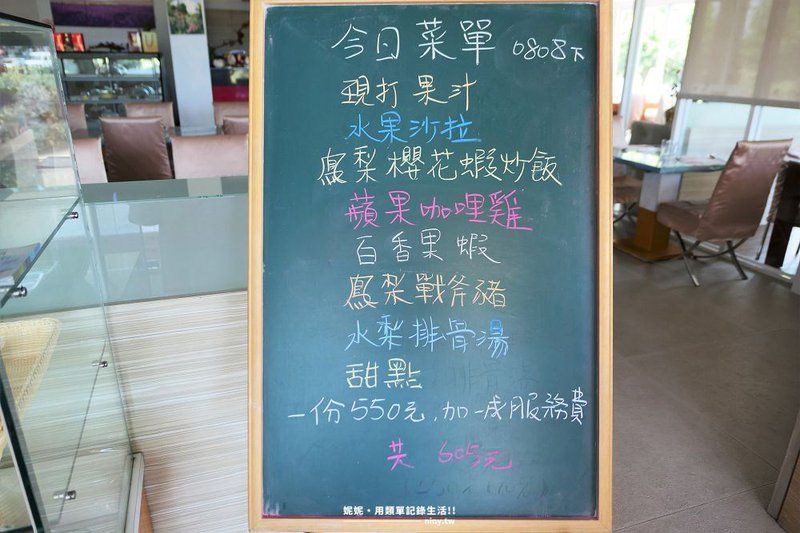 今日菜單 0808下
現打果汁
水果沙拉
鳳梨櫻花蝦炒飯
蘋果咖哩雞
百香果蝦
鳳梨戰斧豬
水梨排骨湯
甜點
一份550元,加一成服務費
共 605元
妮妮•用類單記錄生活!!
niny.tw